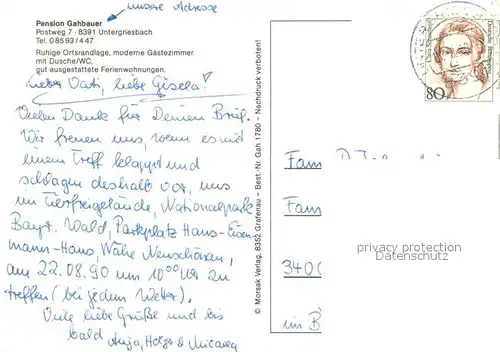 unsere Adresse
Pension Gahbauer
Postweg 7 · 8391 Untergriesbach
Tel. 08593/447
Ruhige Ortsrandlage, moderne Gästezimmer
mit Dusche/WC,
gut ausgestattete Ferienwohnungen.
Lieber Vati, liebe Gisela!
Vielen Dank für Deinen Brief.
Wir freuen uns, wenn es mit
einem Treff klappt und
schlagen deshalb vor, uns
im Tierfreigelände, Nationalpark
Bayr. Wald, Parkplatz Hans-Eisen-
mann-Haus, Nähe Neuschönau,
am 22.08.90 um 10⁰⁰ Uhr zu
treffen (bei jedem Wetter).
Viele liebe Grüße und bis
bald Anja, Holger &
© Morsak Verlag, 8352 Grafenau – Best.-Nr. Gah 1780 – Nachdruck verboten!
80
Clara Schumann
Deutsche Bundespost
Fam
Fam
3400
privacy protection
Datenschutz
im B